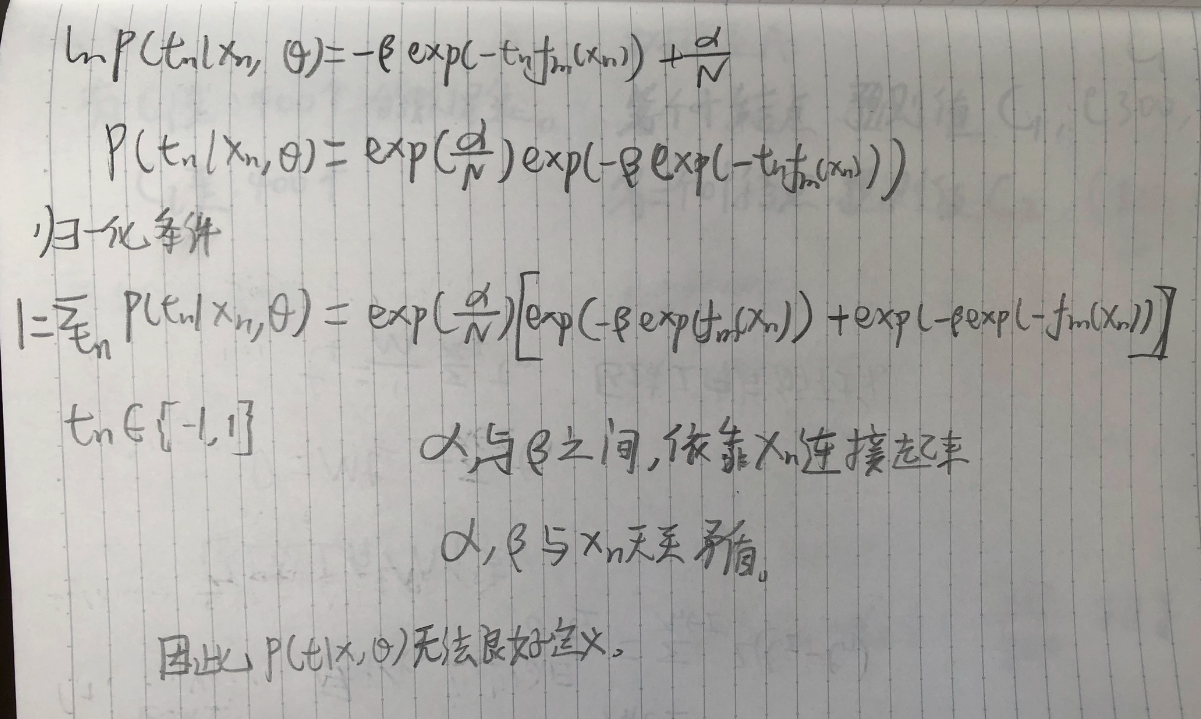 ln P(tn|xn, θ) = -β exp(-tn fm(xn)) + α/N
P(tn|xn, θ) = exp(α/N) exp(-β exp(-tn fm(xn)))
1)归一化条件
1 = Σtn P(tn|xn, θ) = exp(α/N)[exp(-β exp(fm(xn))) + exp(-β exp(-fm(xn)))]
tn ∈ {-1, 1}
α与β之间,依靠xn连接起来
α, β与xn无关矛盾。
因此 P(t|x, θ)无法良好定义。